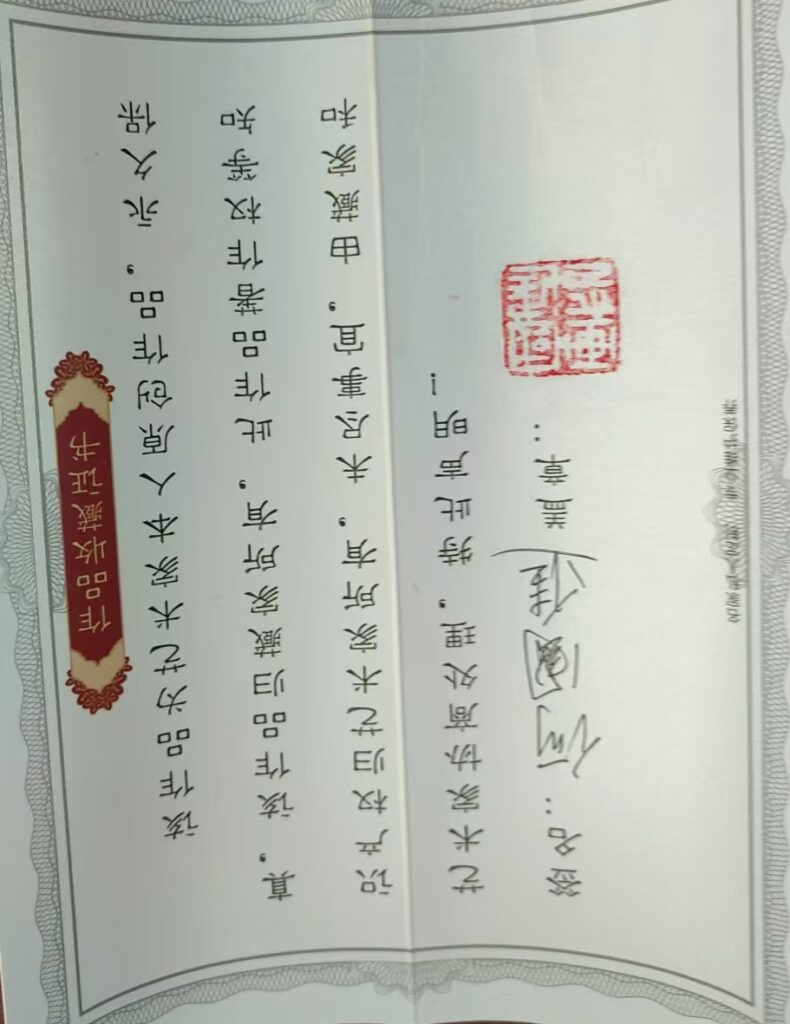 作品收藏证书
该作品为艺术家本人原创作品，永久保
真，该作品归藏家所有，此作品著作权等知
识产权归艺术家所有，未尽事宜，由藏家和
艺术家协商处理，特此声明！
签名：何國雄 盖章：